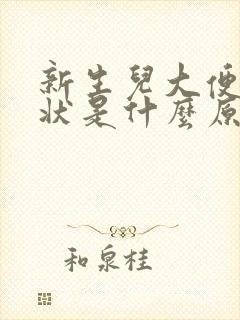 新生兒大便
狀是什麼原
和泉桂